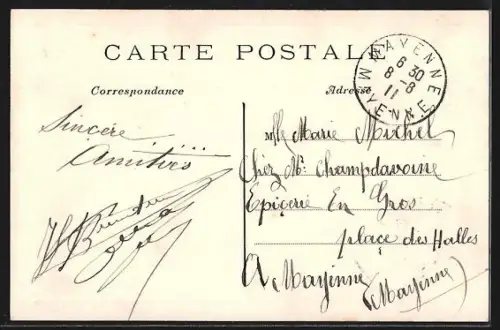 CARTE POSTALE
MAYENNE
6 30
8 -8
11
MAYENNE
Correspondance
Adresse
Sincère
Amitiés
Mlle Marie Michel
Chez Mr. Champdavoine
Epicerie En Gros
place des Halles
A Mayenne
(Mayenne)